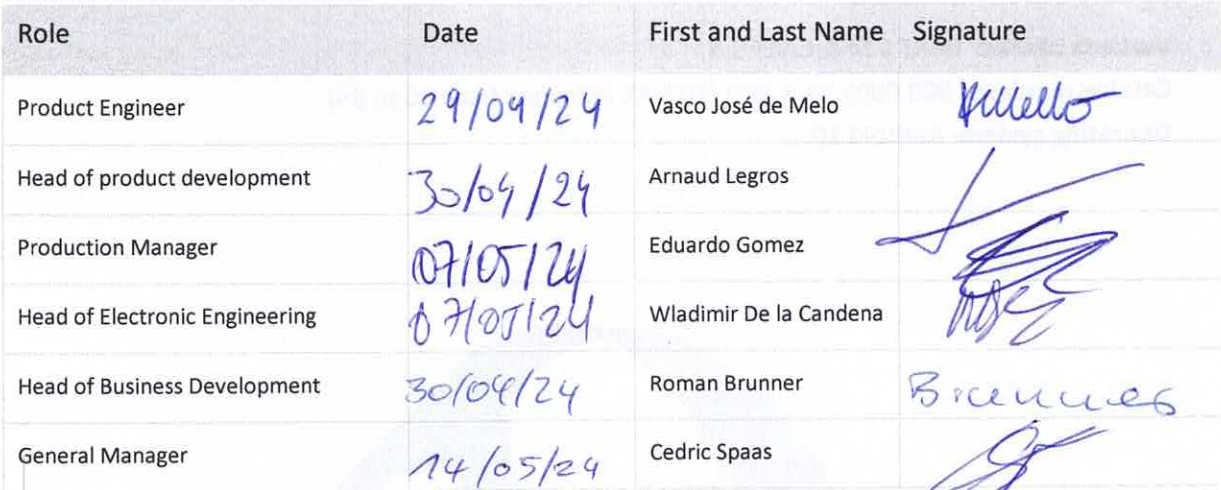 Role Date First and Last Name Signature
Product Engineer 29/04/24 Vasco José de Melo
Head of product development 30/04/24 Arnaud Legros
Production Manager 07/05/24 Eduardo Gomez
Head of Electronic Engineering 07/05/24 Wladimir De la Candena
Head of Business Development 30/04/24 Roman Brunner Brunner
General Manager 14/05/24 Cedric Spaas